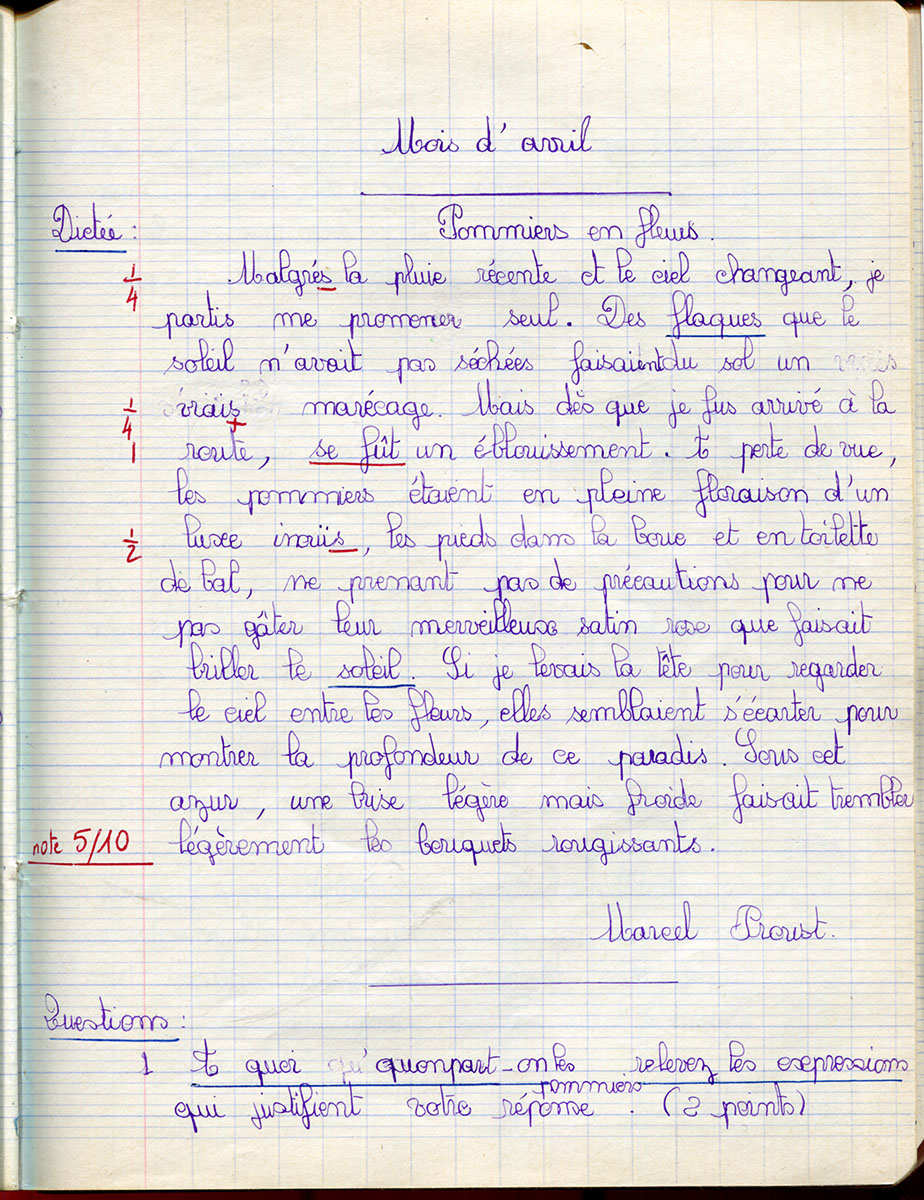 Mois d'avril
Dictée : Pommiers en fleurs.
1/4 Malgrés la pluie récente et le ciel changeant, je
partis me promener seul. Des flaques que le
soleil n'avait pas séchées faisaient du sol un
1/4 vrais marécage. Mais dès que je fus arrivé à la
1 route, se fût un éblouissement. A perte de vue,
les pommiers étaient en pleine floraison d'un
1/2 luxe inouïs, les pieds dans la boue et en toilette
de bal, ne prenant pas de précautions pour ne
pas gâter leur merveilleux satin rose que faisait
briller le soleil. Si je levais la tête pour regarder
le ciel entre les fleurs, elles semblaient s'écarter pour
montrer la profondeur de ce paradis. Sous cet
azur, une brise légère mais froide faisait trembler
note 5/10 légèrement les bouquets rougissants.
Marcel Proust.
Questions :
1 A quoi qu'quonpart-on les relevez les expressions
pommiers
qui justifient votre réponse. (2 points)